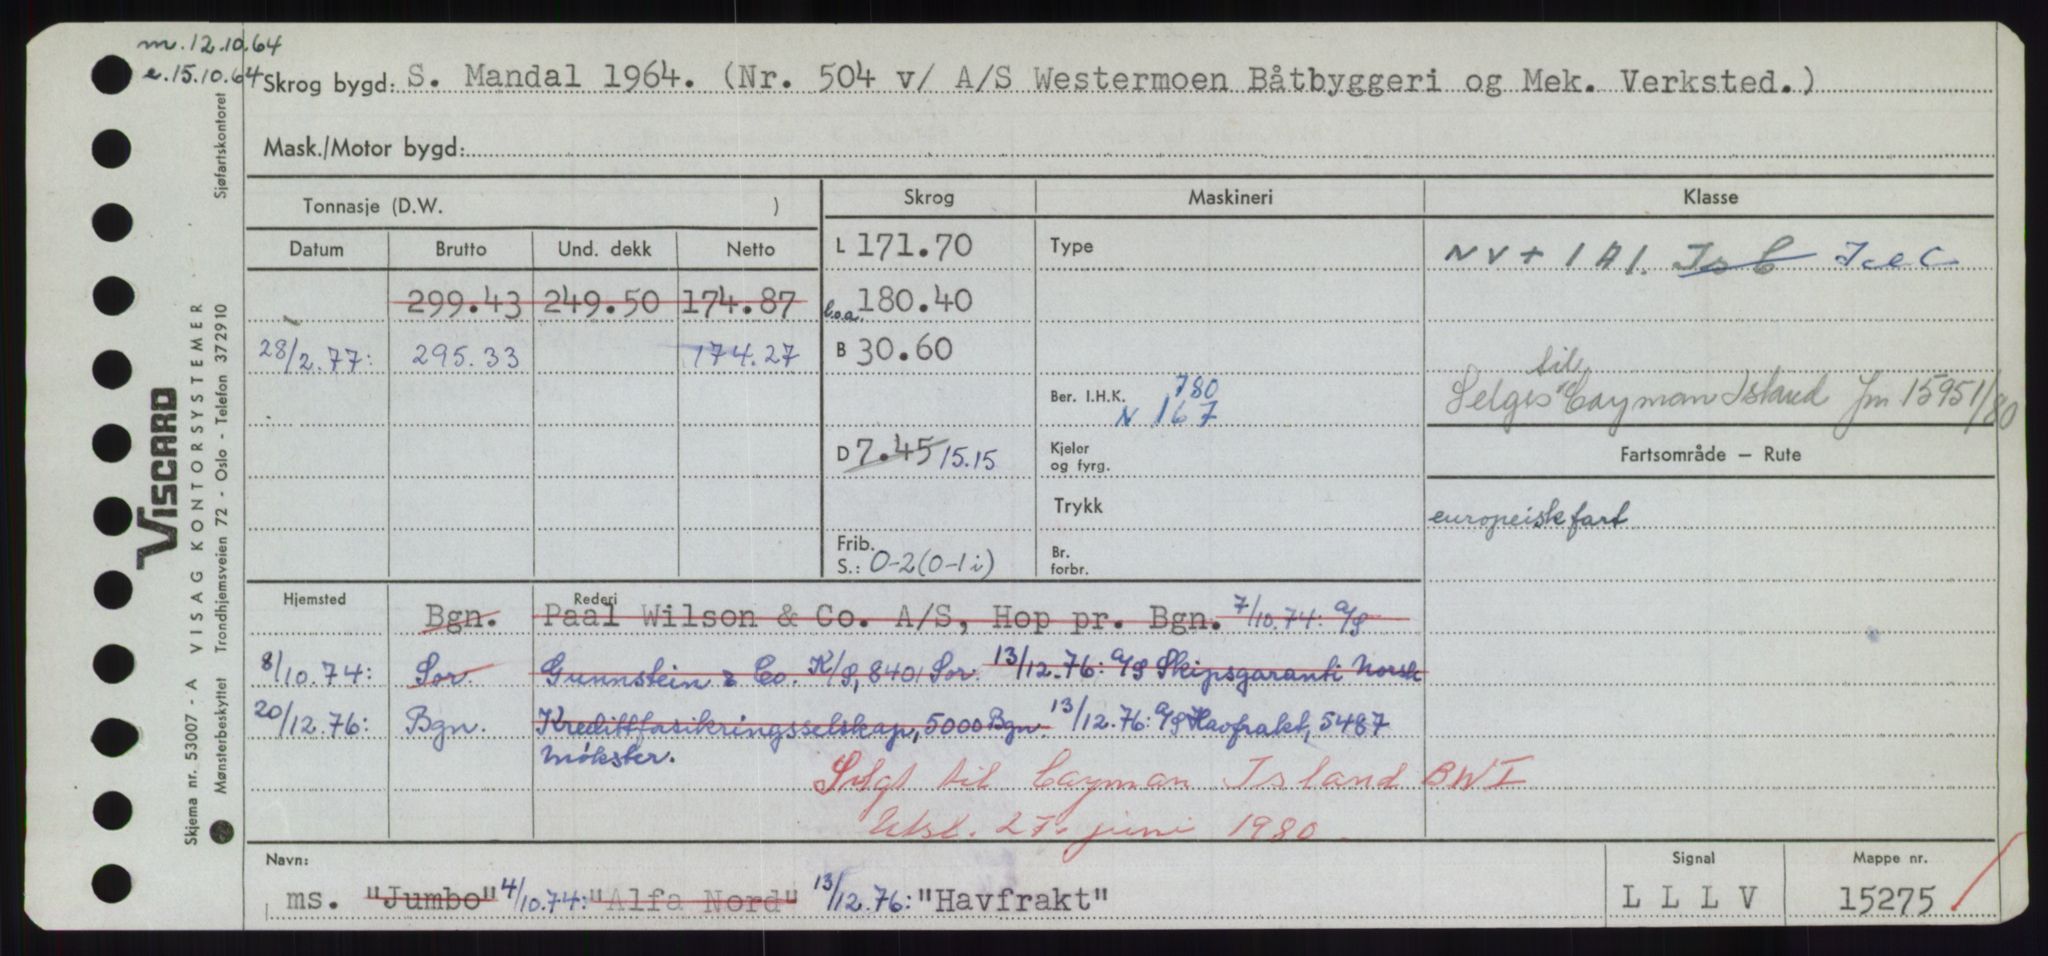 m. 12.10.64
e. 15.10.64
Skrog bygd: S. Mandal 1964. (Nr. 504 v/ A/S Westermoen Båtbyggeri og Mek. Verksted.)
Mask./Motor bygd:
Tonnasje (D.W. )
Skrog
Maskineri
Klasse
Datum Brutto Und. dekk Netto
L 171.70
Type
NV + 1A1. Is C Ice C
299.43 249.50 174.87
l.o.a. 180.40
28/2.77: 295.33 174.27
B 30.60
Ber. I.H.K. 780
N 167
til
Selges Cayman Island Jm 15951/80
D 7.45 15.15
Kjeler
og fyrg.
Fartsområde – Rute
Trykk
europeisk fart
Frib.
S.: 0-2(0-1i)
Br.
forbr.
Hjemsted
Rederi
Bgn. Paal Wilson & Co. A/S, Hop pr. Bgn. 7/10.74: A/S
8/10.74: Sor. Gunnstein & Co. K/S, 8401 Sor. 13/12.76: A/S Skipsgaranti Norsk
20/12.76: Bgn. Kredittforsikringsselskap, 5000 Bgn 13/12.76: A/S Havfrakt, 5487
Møkster.
Solgt til Cayman Island BWI
Utsl. 27. juni 1980.
Navn:
ms. "Jumbo" 4/10.74: "Alfa Nord" 13/12.76: "Havfrakt"
Signal
L L L V
Mappe nr.
15275
VISCARD
Skjema nr. 53007 - A VISAG KONTORSYSTEMER
Mønsterbeskyttet Trondhjemsveien 72 - Oslo - Telefon 372910 Sjøfartskontoret